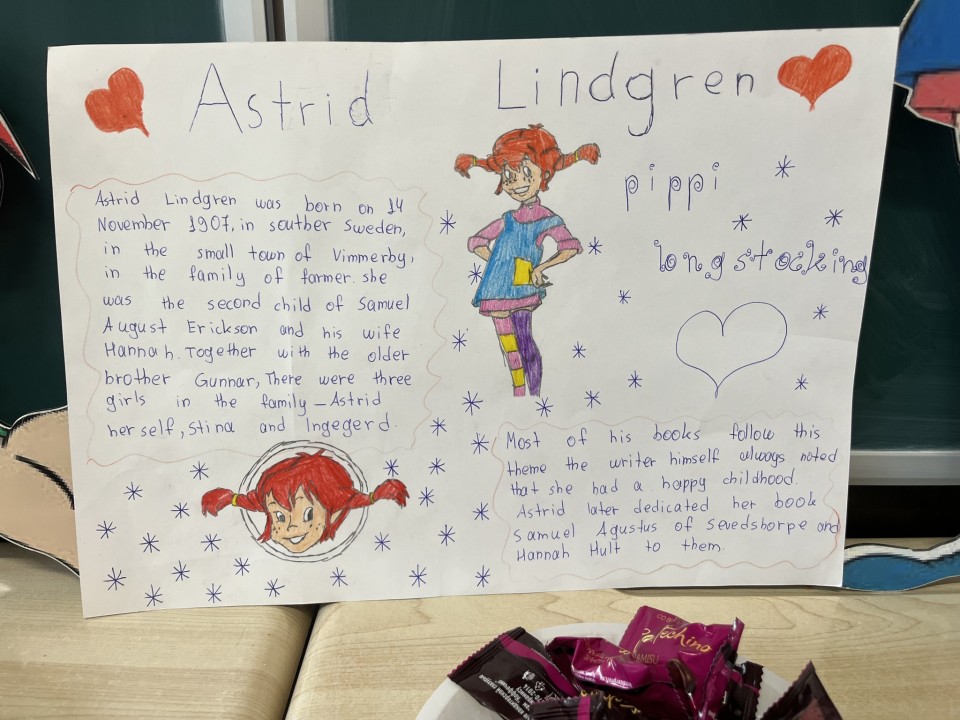 Astrid Lindgren
pippi
longstocking
Astrid Lindgren was born on 14
November 1907, in souther Sweden,
in the small town of Vimmerby,
in the family of farmer. she
was the second child of Samuel
August Erickson and his wife
Hannah. Together with the older
brother Gunnar, There were three
girls in the family – Astrid
herself, Stina and Ingegerd.
Most of his books follow this
theme the writer himself always noted
that she had a happy childhood.
Astrid later dedicated her book
Samuel Agustus of Sevedshorpe and
Hannah Hult to them.